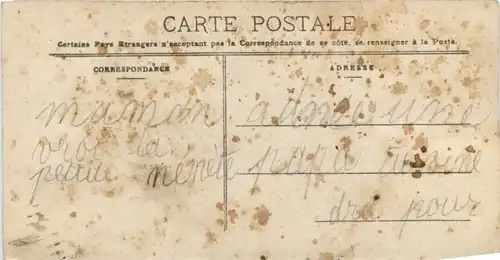 CARTE POSTALE
Certains Pays Etrangers n'acceptant pas la Correspondance de ce côté, se renseigner à la Poste.
CORRESPONDANCE
ADRESSE
maman
la
petite Nénète
une
papa
dra pour